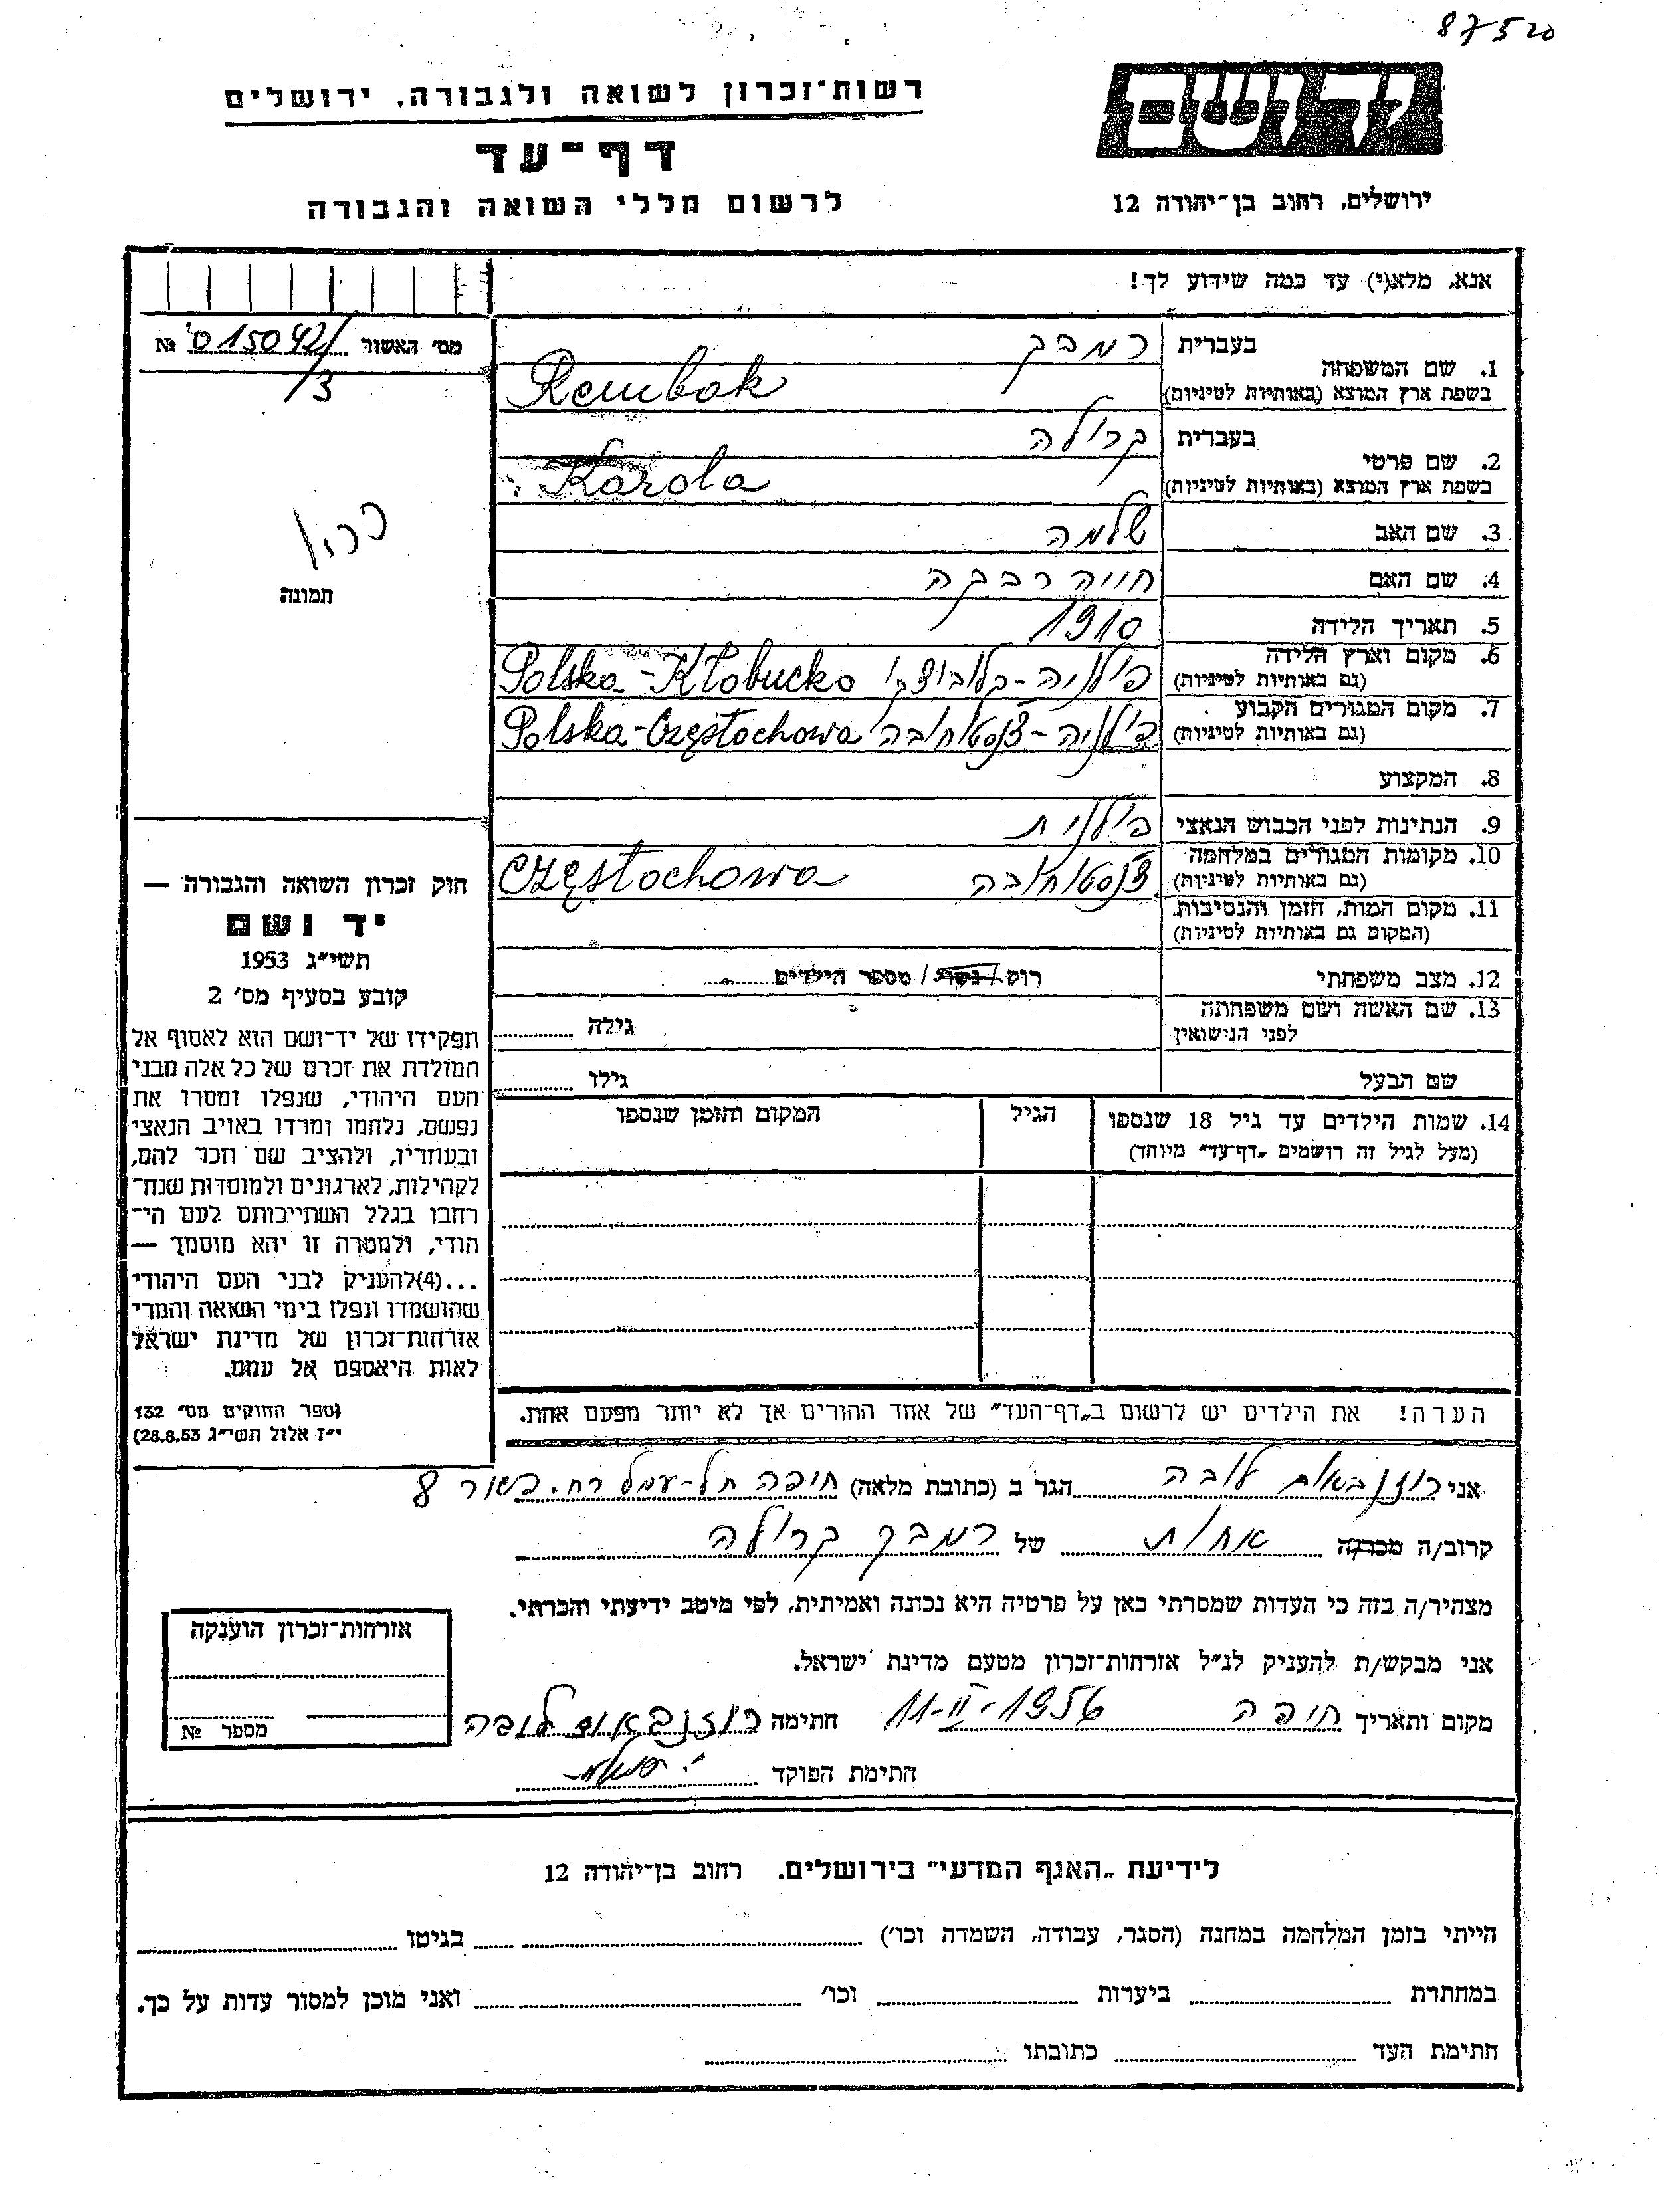 87520
רשות־זכרון לשואה ולגבורה, ירושלים
דף־עד
לרשום חללי השואה והגבורה
ידושם
ירושלים, רחוב בן־יהודה 12
אנא, מלא(י) עד כמה שידוע לך!
מס' האשור 015042/3 №
תמונה
1. שם המשפחה
בעברית רמבק
בשפת ארץ המוצא (באותיות לטיניות) Rembak
2. שם פרטי
בעברית קרולה
בשפת ארץ המוצא (באותיות לטיניות) Karola
3. שם האב שלמה
4. שם האם חוויה רבקה
5. תאריך הלידה 1910
6. מקום וארץ הלידה
(גם באותיות לטיניות) פולניה - קלובוצקו Polska - Kłobucko
7. מקום המגורים הקבוע
(גם באותיות לטיניות) פולניה - צ'נסטוחובה Polska - Częstochowa
8. המקצוע
9. הנתינות לפני הכבוש הנאצי פולנית
10. מקומות המגורים במלחמה
(גם באותיות לטיניות) צ'נסטוחובה Częstochowa
11. מקום המות, הזמן והנסיבות
(המקום גם באותיות לטיניות)
12. מצב משפחתי רוק / נשוי / מספר הילדים
13. שם האשה ושם משפחתה
לפני הנישואין
גילה
שם הבעל
גילו
14. שמות הילדים עד גיל 18 שנספו
(מעל לגיל זה רושמים „דף־עד" מיוחד)
הגיל
המקום והזמן שנספו
הערה! את הילדים יש לרשום ב„דף־העד" של אחד ההורים אך לא יותר מפעם אחת.
חוק זכרון השואה והגבורה —
יד ושם
תשי״ג 1953
קובע בסעיף מס' 2
תפקידו של יד־ושם הוא לאסוף אל
המולדת את זכרם של כל אלה מבני
העם היהודי, שנפלו ומסרו את
נפשם, נלחמו ומרדו באויב הנאצי
ובעוזריו, ולהציב שם וזכר להם,
לקהילות, לארגונים ולמוסדות שנח־
רבו בגלל השתייכותם לעם הי־
הודי, ולמטרה זו יהא מוסמך —
...(4)להעניק לבני העם היהודי
שהושמדו ונפלו בימי השואה והמרי
אזרחות־זכרון של מדינת ישראל
לאות היאספם אל עמם.
(ספר החוקים מס' 132
י״ז אלול תשי״ג 28.8.53)
אני רוזנבאום לובה הגר ב (כתובת מלאה) חיפה תל-עמל רח. פשור 8
קרוב/ה מכר/ה אחות של רמבק קרולה
מצהיר/ה בזה כי העדות שמסרתי כאן על פרטיה היא נכונה ואמיתית, לפי מיטב ידיעתי והכרתי.
אני מבקש/ת להעניק לנ״ל אזרחות־זכרון מטעם מדינת ישראל.
מקום ותאריך חיפה 11-II-1956 חתימה רוזנבאום לובה
חתימת הפוקד
אזרחות־זכרון הוענקה
מספר №
לידיעת „האגף המדעי" בירושלים. רחוב בן־יהודה 12
הייתי בזמן המלחמה במחנה (הסגר, עבודה, השמדה וכו') בגיטו
במחתרת ביערות וכו' ואני מוכן למסור עדות על כך.
חתימת העד כתובתו